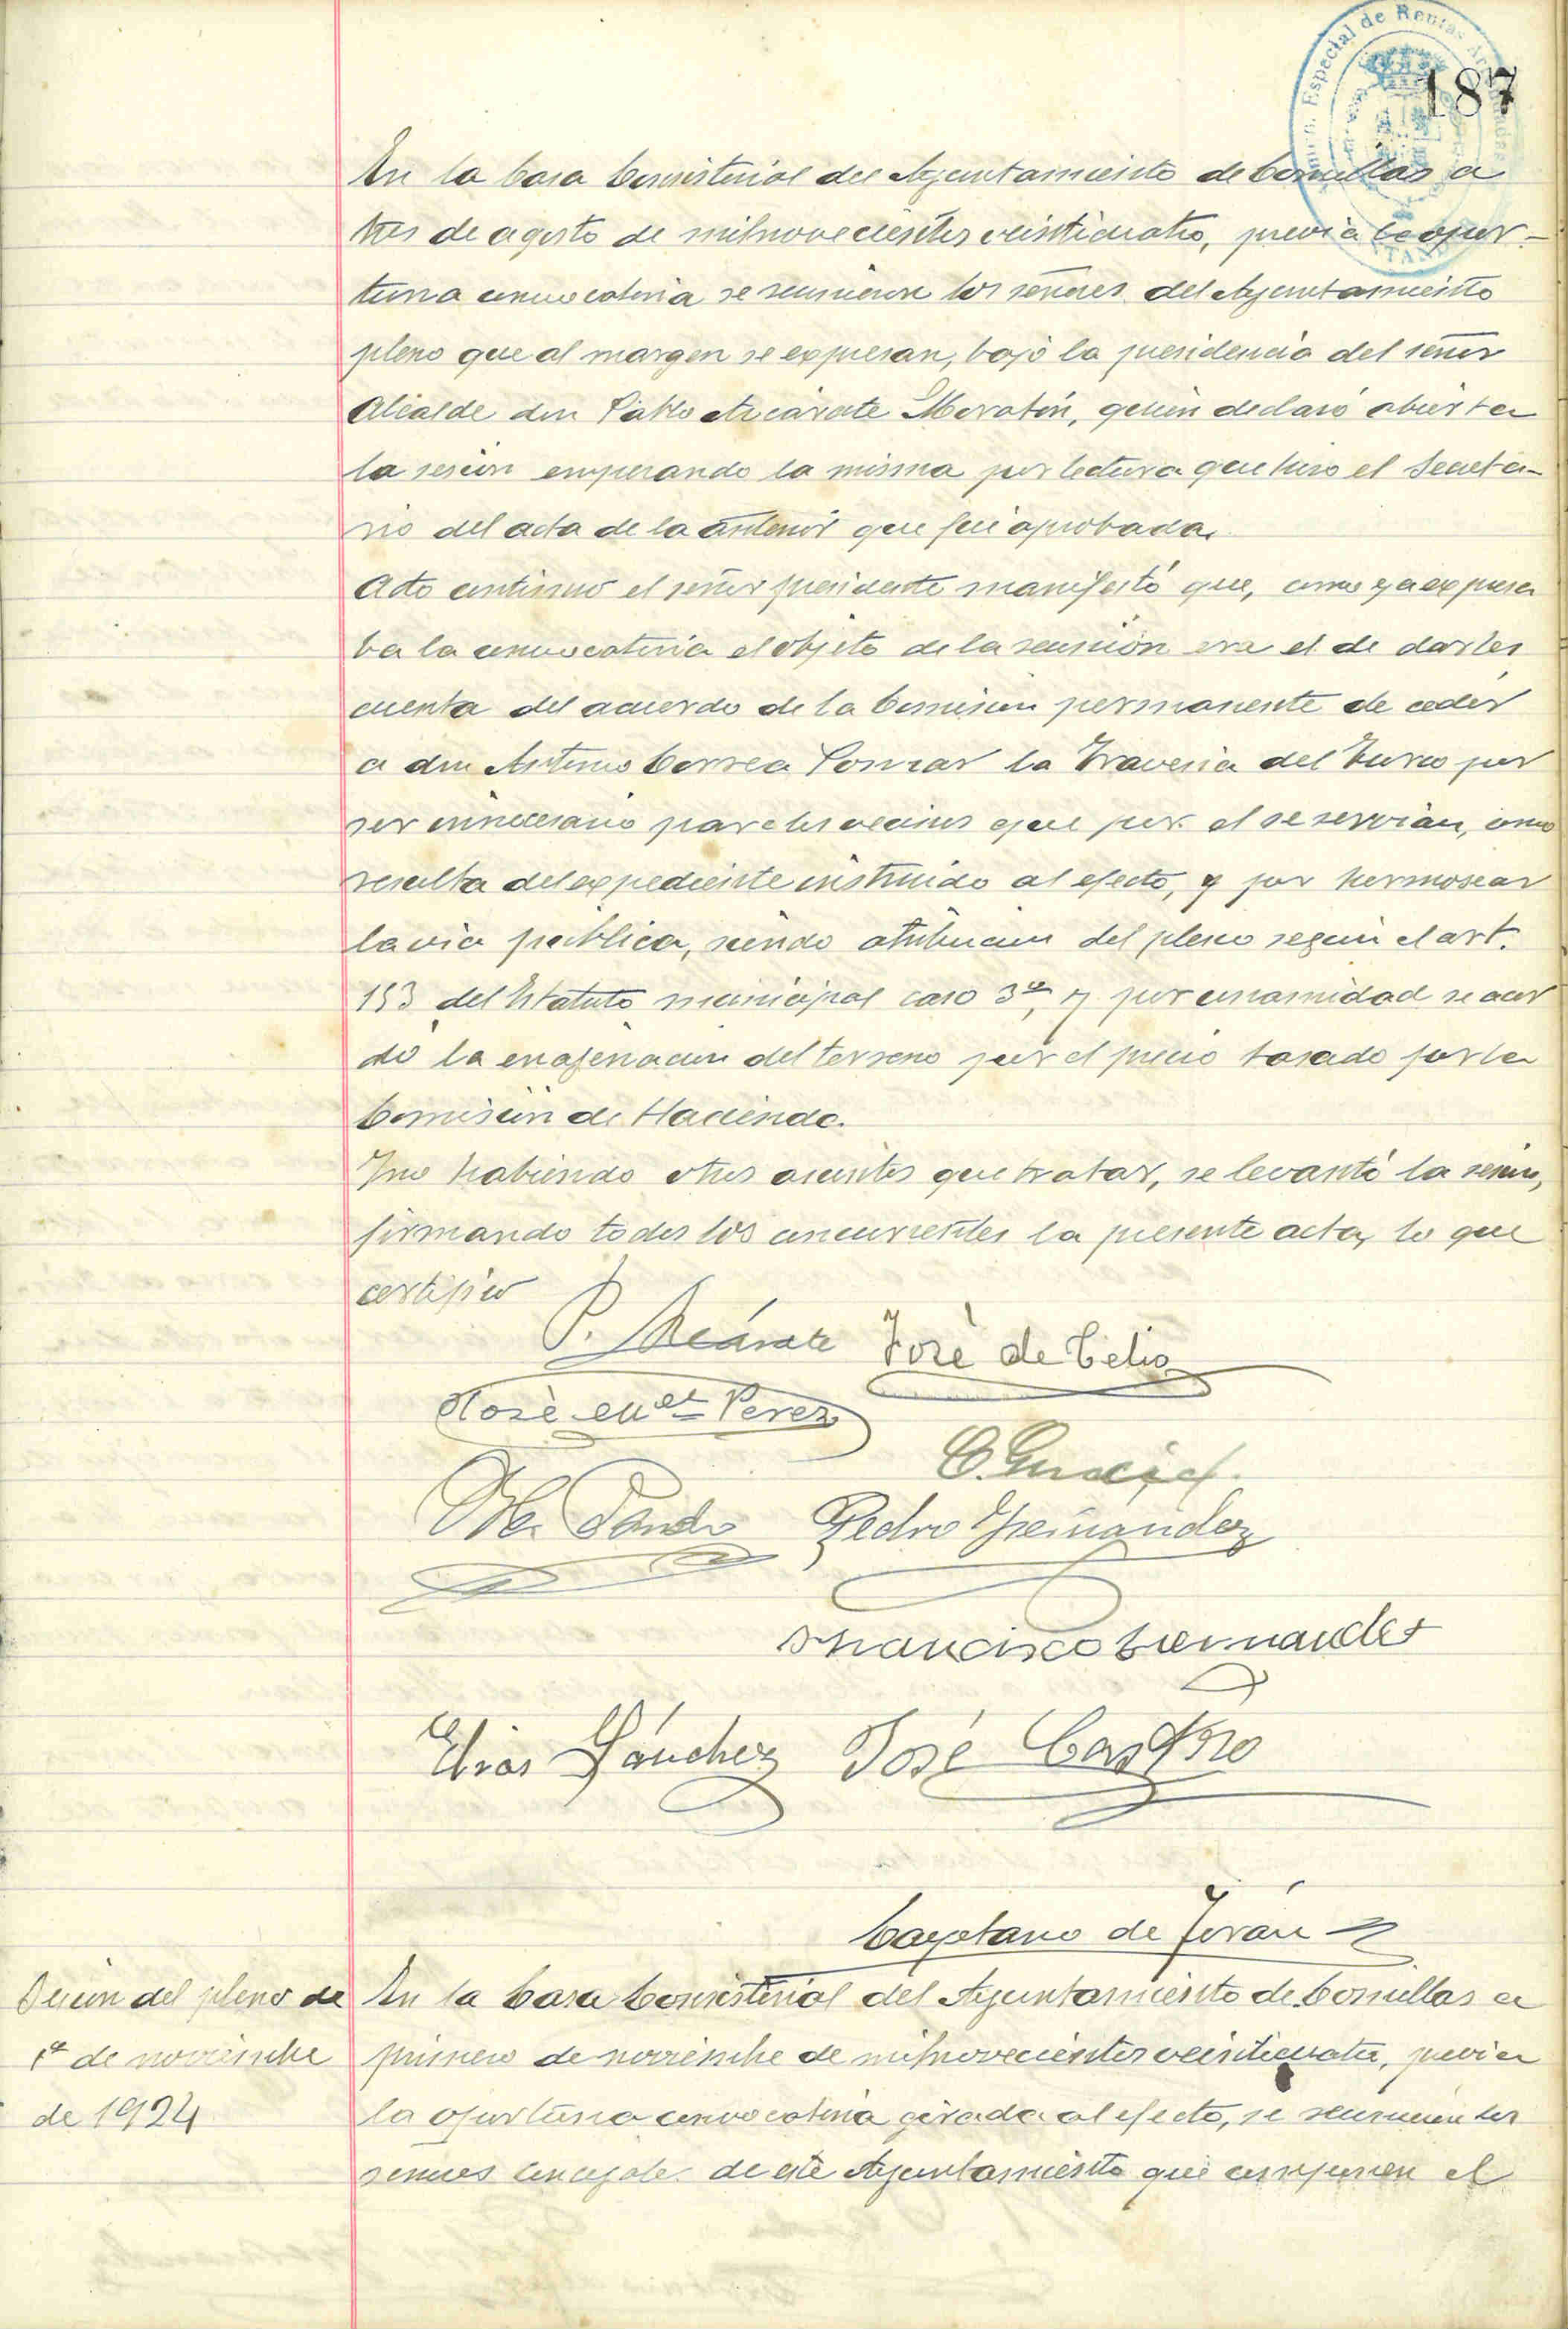 187
En la Casa Consistorial del Ayuntamiento de Comillas a
tres de agosto de mil novecientos veinticuatro, previa la opor-
tuna convocatoria se reunieron los señores del Ayuntamiento
pleno que al margen se expresan, bajo la presidencia del señor
Alcalde don Pablo Azcárate Moratón, quien declaró abierta
la sesión empezando la misma por lectura que hizo el Secreta-
rio del acta de la anterior que fué aprobada.
Acto continuo el señor presidente manifestó que, como ya expresa
ba la convocatoria el objeto de la reunión era el de darles
cuenta del acuerdo de la Comisión permanente de ceder
a don Antonio Correa Pomar la Travesía del Turco por
ser innecesario para los vecinos que por el se servían, como
resulta del expediente instruido al efecto, y por hermosear
la vía pública, siendo atribución del pleno según el art.
153 del Estatuto municipal caso 3º, y por unanimidad se acor
dó la enajenación del terreno por el precio tasado por la
Comisión de Hacienda.
Y no habiendo otros asuntos que tratar, se levantó la sesión,
firmando todos los concurrentes la presente acta, lo que
certifico
P. Azcárate José de Celis
José Mª Perez
C. García
M. Pando Pedro Fernandez
Francisco Fernandez
Elias Sánchez José Castro
Cayetano de Terán
Sesión del pleno de
1º de noviembre
de 1924
En la Casa Consistorial del Ayuntamiento de Comillas a
primero de noviembre de mil novecientos veinticuatro, previa
la oportuna convocatoria girada al efecto, se reunieron los
señores concejales de este Ayuntamiento que componen el